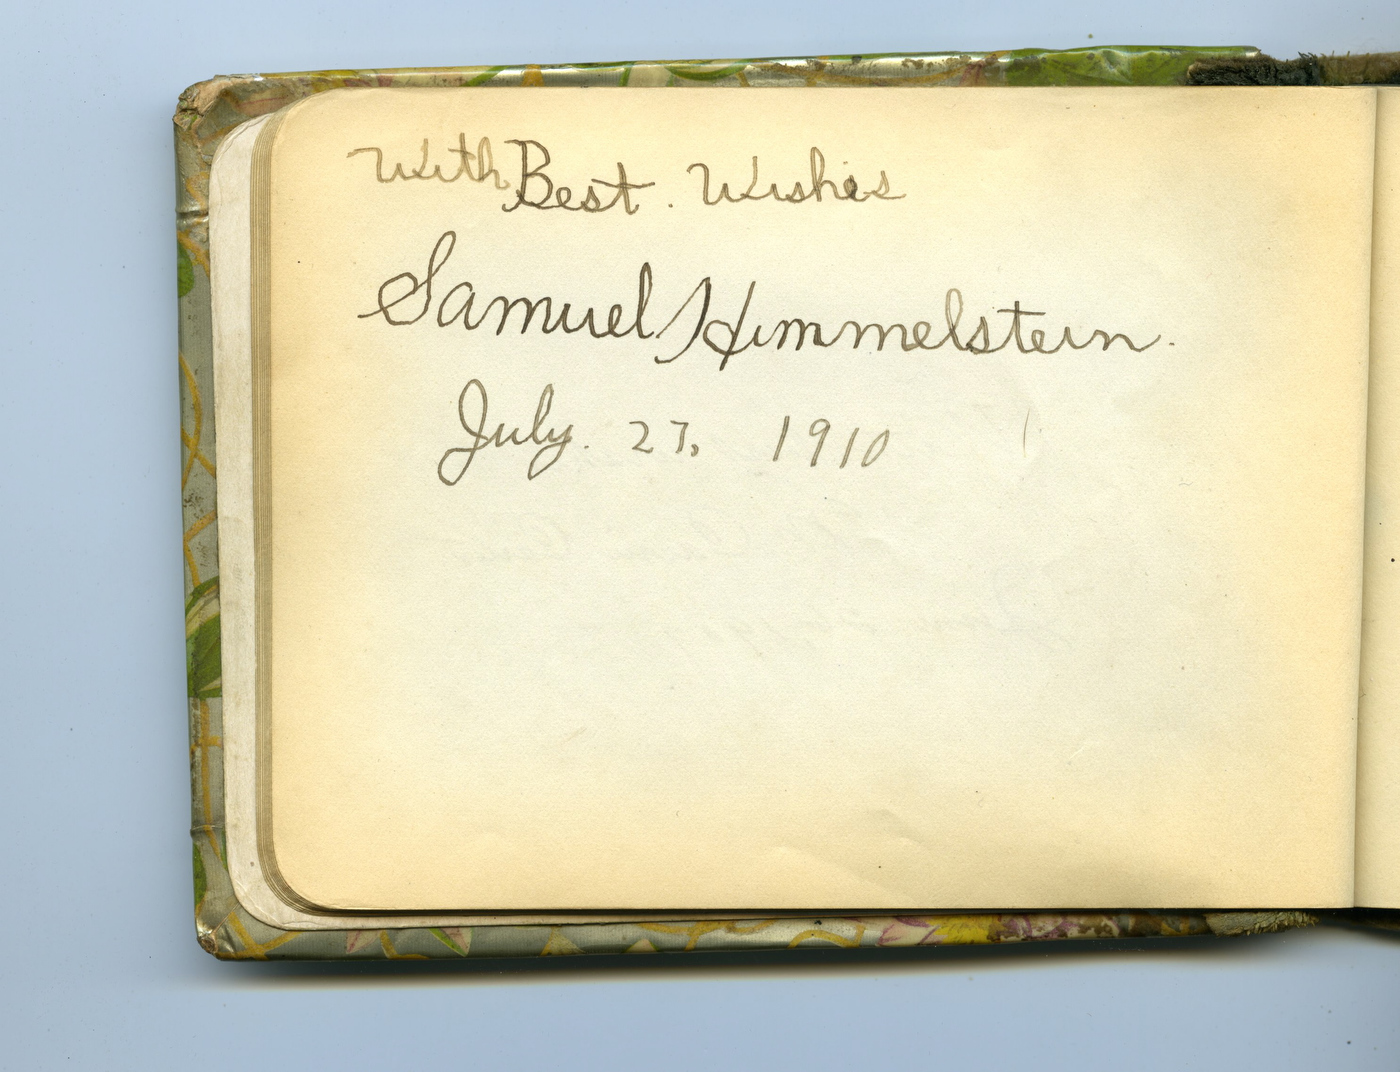 With Best. Wishes
Samuel Himmelstein.
July. 27, 1910